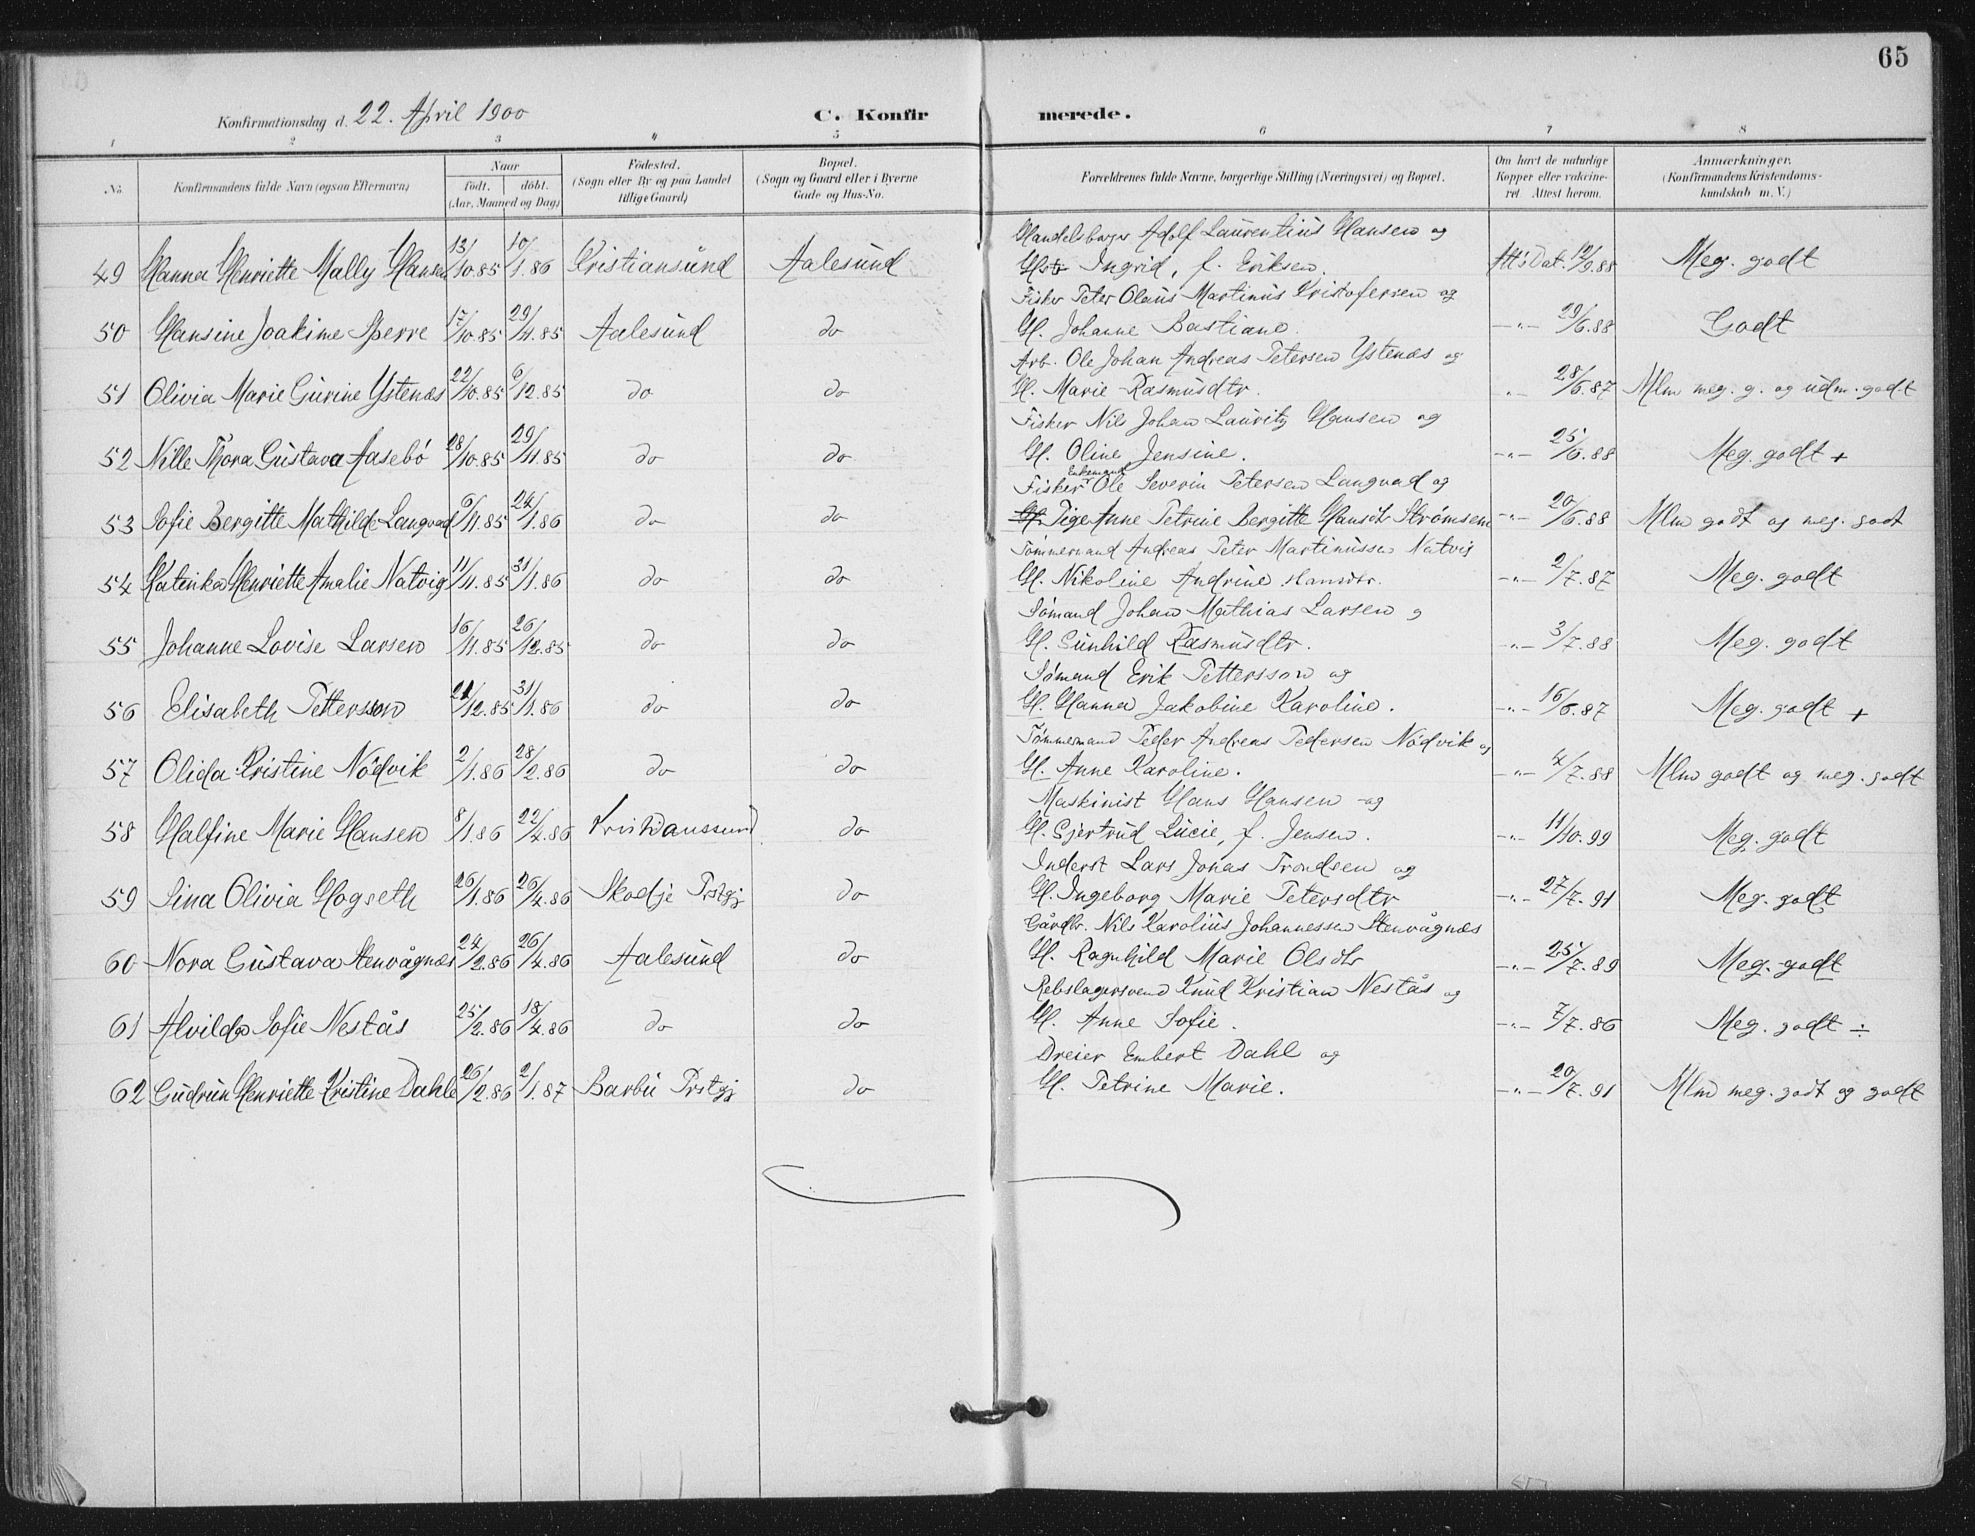 65
Konfirmationsdag d. 22. April 1900 C. Konfirmerede.
1 2 3 4 5 6 7 8
No. Konfirmandens fulde Navn (ogsaa Efternavn) Naar födt. döbt. (Aar, Maaned og Dag) Födested. (Sogn eller By og paa Landet tillige Gaard) Bopæl. (Sogn og Gaard eller i Byerne Gade og Hus-No. Forældrenes fulde Navne, borgerlige Stilling (Næringsvei) og Bopæl. Om havt de naturlige Kopper eller vakcineret. Attest herom. Anmærkninger. (Konfirmandens Kristendomskundskab m. V.)
Handelsborger Adolf Laurentius Hansen og
49 Hanna Henriette Mally Hansen 13/10.85 10/1.86 Kristiansund Aalesund Hst Ingrid, f. Eriksen. Att's Dat. 12/9.88 Meg. godt
Fisker Peter Olaus Martinus Kristofersen og
50 Hansine Joakime Sperre 17/10.85 29/11.85 Aalesund do H. Johanne Bastiane. -"- 29/6.88 Godt
Arb. Ole Johan Andreas Petersen Ystenæs og
51 Olivia Marie Gurine Ystenæs 22/10.85 6/12.85 do do H. Marie Rasmusdtr. "- 28/6.87 Mlm meg. g. og udm. godt
Fisker Nils Johan Lauritz Hansen og
52 Nille Thora Gustava Aasebö 28/10.85 29/11.85 do do H. Oline Jensine. -"- 25/6.88 Meg. godt +
Fisker Enkemand Ole Severin Petersen Langvad og
53 Sofie Bergitte Mathilde Langvad 6/11.85 24/1.86 do do H. Pige Anne Petrine Bergitte Hansdtr Strømsem -"- 20/6.88 Mlm godt og meg. godt
Tömmermand Andreas Peter Martinussen Natvig
54 Katinka Henriette Amalie Natvig 11/11.85 31/1.86 do do H. Nikoline Andrine Hansdtr. -"- 2/7.87 Meg. godt
Sømand Johan Mathias Larsen og
55 Johanne Lovise Larsen 16/11.85 26/12.85 do do H. Gunhild Rasmusdtr. -"- 3/7.88 Meg. godt
Sømand Erik Pettersson og
56 Elisabeth Pettersson 21/12.85 31/1.86 do do H. Hanna Jakobine Karoline. -"- 16/6.87 Meg. godt +
Tømmermand Peder Andreas Pedersen Nödvik og
57 Olida Kristine Nödvik 2/1.86 28/2.86 do do H. Anne Karoline. -"- 4/7.88 Mlm godt og meg. godt
Maskinist Hans Hansen og
58 Halfine Marie Hansen 8/1.86 22/4.86 Kristianssund do H. Gjertrud Lucie, f. Jensen. -"- 11/10.99 Meg. godt
Inderst Lars Jonas Trondsen og
59 Sina Olivia Hogseth 26/1.86 26/4.86 Skodje Prstgj do H. Ingeborg Marie Petersdtr -"- 27/7.91 Meg. godt
Gårdbr. Nils Karolius Johannessen Stenvågnæs
60 Nora Gustava Stenvågnæs 24/2.86 26/4.86 Aalesund do H. Ragnhild Marie Olsdtr -"- 25/7.89 Meg. godt
Rebslagersvend Knud Kristian Nestås og
61 Alvilde Sofie Nestås 25/2.86 18/4.86 do do H. Anne Sofie. -"- 7/7.86 Meg. godt ÷
Dreier Embert Dahl og
62 Gudrun Henriette Kristine Dahle 26/2.86 2/1.87 Barbu Prstgj do H. Petrine Marie. -"- 20/7.91 Mlm meg. godt og godt